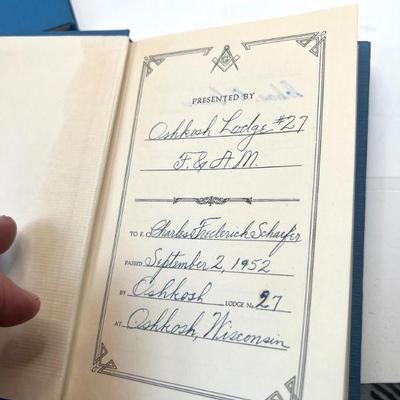 G
PRESENTED BY
Oshkosh Lodge #27
F. & A.M.
TO F. C. Charles Frederick Schaefer
PASSED September 2, 1952
BY Oshkosh LODGE No. 27
AT Oshkosh, Wisconsin